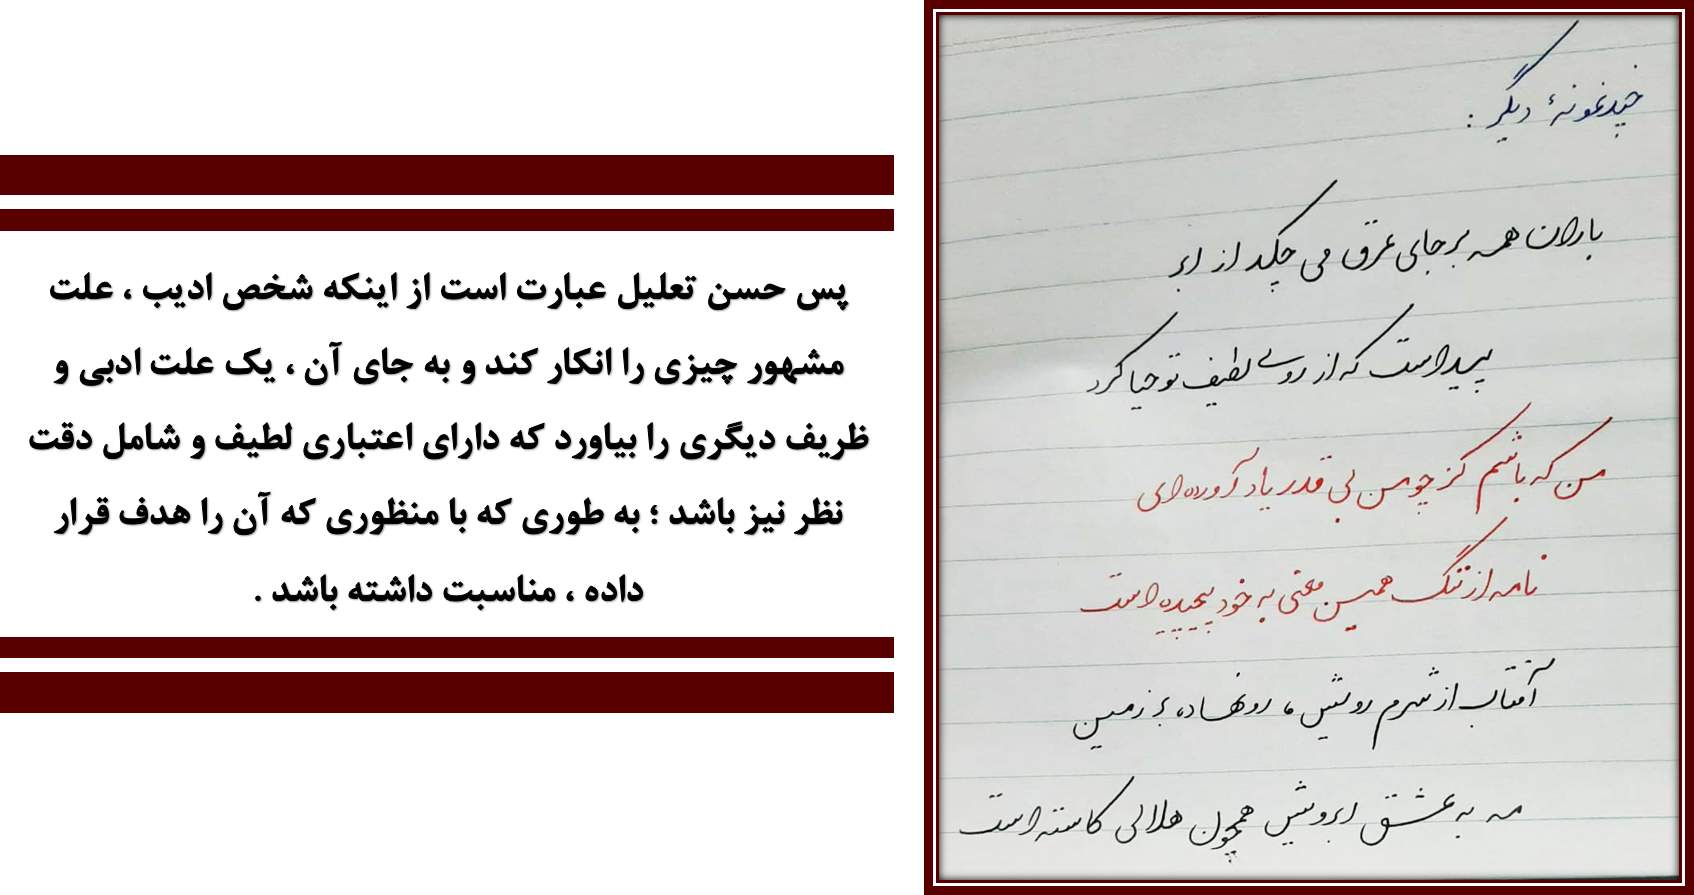 چند نمونهٔ دیگر :
باران همه بر جای عرق می چکد از ابر
پیداست که از روی لطیف تو حیا کرد
من که باشم کز چو من بی قدر یاد آورده ای
نامه از ننگ همین معنی به خود پیچیده است
آفتاب از شرم رویش ، رو نهاده بر زمین
مه به عشق ابرویش همچون هلالی کاسته است
پس حسن تعلیل عبارت است از اینکه شخص ادیب ، علت
مشهور چیزی را انکار کند و به جای آن ، یک علت ادبی و
ظریف دیگری را بیاورد که دارای اعتباری لطیف و شامل دقت
نظر نیز باشد ؛ به طوری که با منظوری که آن را هدف قرار
داده ، مناسبت داشته باشد .